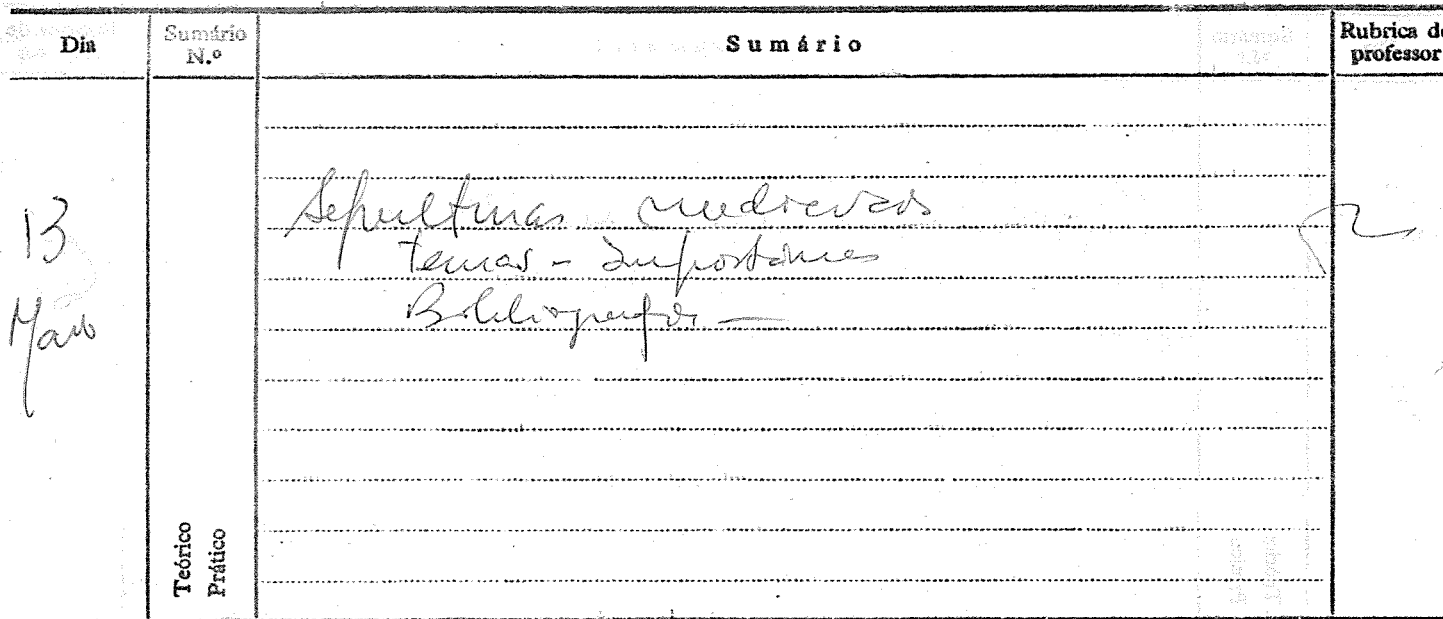 Dia
Sumário
N.º
Sumário
Rubrica do
professor
13
Março
Sepulturas medievais
temas - importância
Bibliografia —
Teórico
Prático